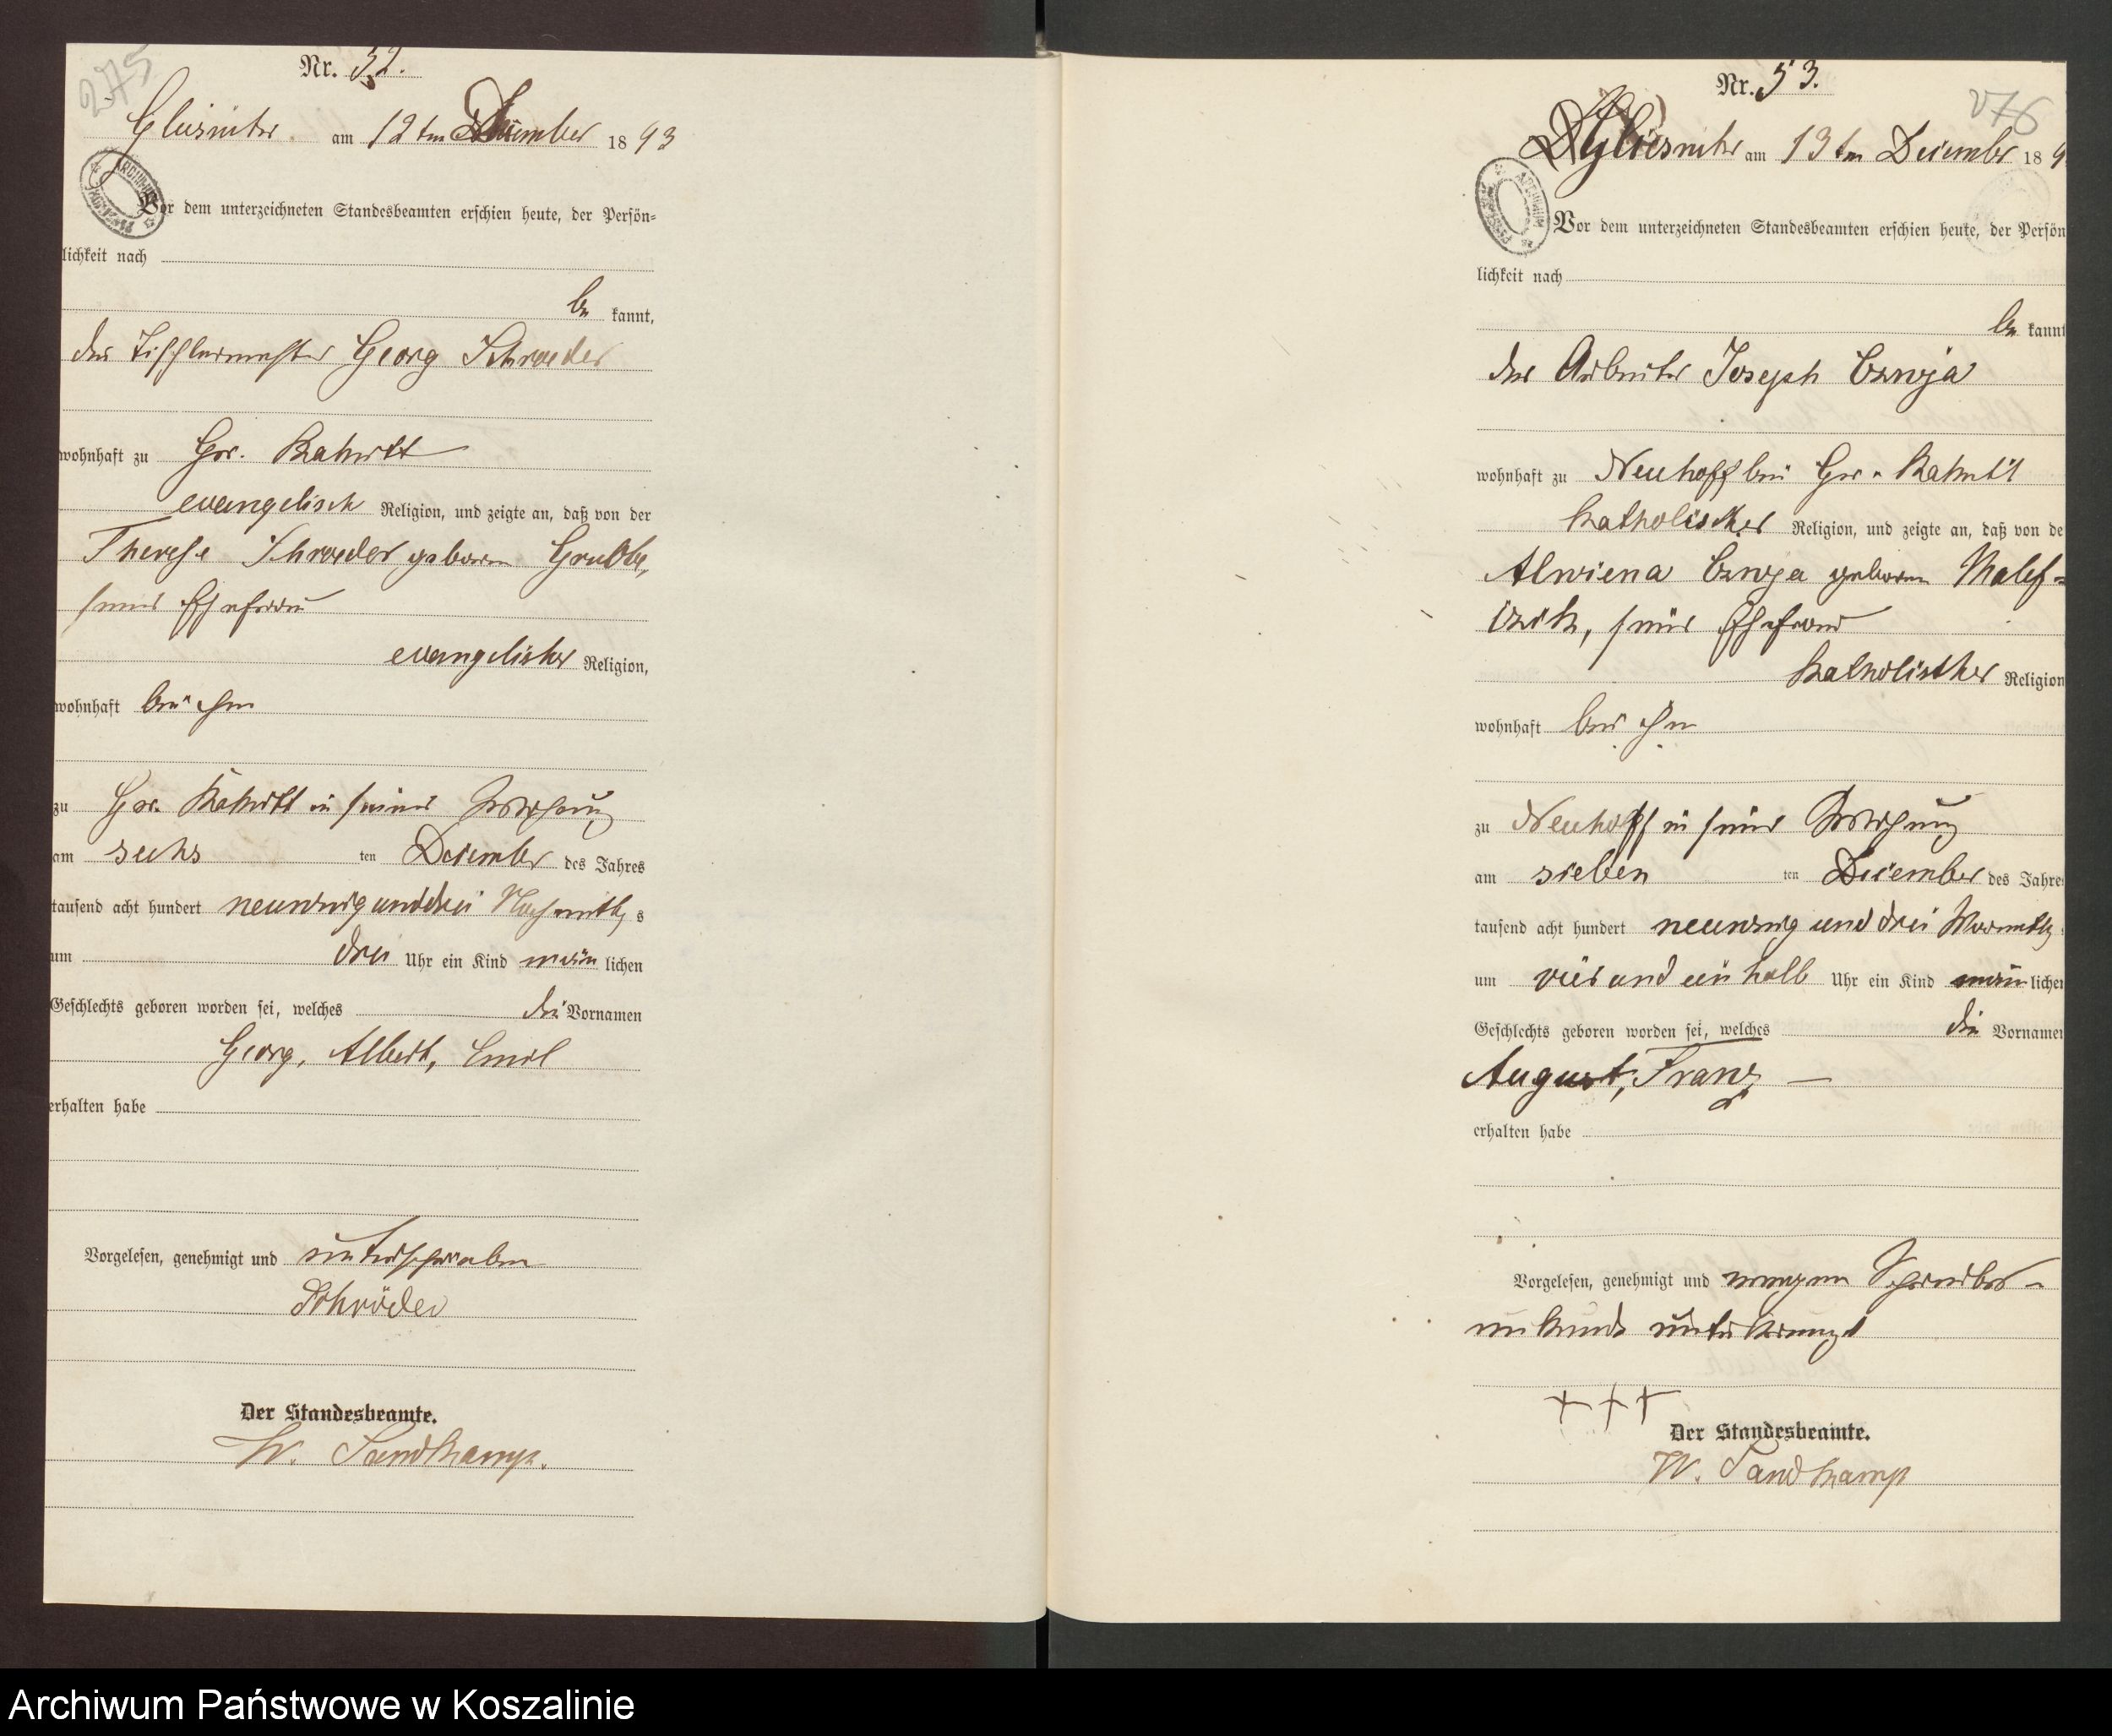 275
Nr. 52.
Gliesnitz am 12ten December 1893
Vor dem unterzeichneten Standesbeamten erschien heute, der Persön=
lichkeit nach
be kannt,
der Tischlermeister Georg Schroeder
wohnhaft zu Gr. Rakitt
evangelisch Religion, und zeigte an, daß von der
Therese Schroeder geboren
seiner Ehefrau
evangelischer Religion,
wohnhaft bei ihm
zu Gr. Rakitt in seiner Wohnung
am sechs ten December des Jahres
tausend acht hundert neunzig und drei Nachmittags
um drei Uhr ein Kind män lichen
Geschlechts geboren worden sei, welches die Vornamen
Georg, Albert, Emil
erhalten habe
Vorgelesen, genehmigt und unterschrieben
Schröder
Der Standesbeamte.
W. Sandkamp.
276
Nr. 53.
Gliesnitz am 13ten December 189
Vor dem unterzeichneten Standesbeamten erschien heute, der Persön
lichkeit nach
be kannt
der Arbeiter Joseph Czyrja
wohnhaft zu Neuhoff bei Gr. Rakitt
katholischer Religion, und zeigte an, daß von de
Alwiena geboren
seiner Ehefrau
katholischer Religion
wohnhaft bei ihm
zu Neuhoff in seiner Wohnung
am sieben ten December des Jahre
tausend acht hundert neunzig und drei Vormittags
um vier und ein halb Uhr ein Kind män liche
Geschlechts geboren worden sei, welches die Vorname
August, Franz —
erhalten habe
Vorgelesen, genehmigt und wegen Schreibens-
unkunde unterkreuzt
+++
Der Standesbeamte.
W. Sandkamp
Archiwum Państwowe w Koszalinie